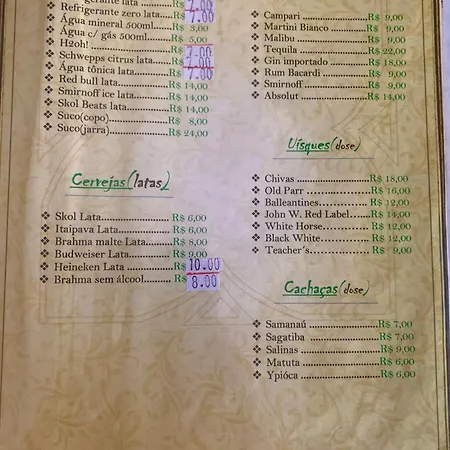 gerante lata ............R$ 7.00
Refrigerante zero lata....R$ 7.00
Água mineral 500ml...R$ 3,00
Água c/ gás 500ml.....R$ 5,00
H2oh!.....................R$ 7.00
Schwepps citrus lata....R$ 7.00
Água tônica lata.........R$ 7.00
Red bull lata.............R$ 14,00
Smirnoff ice lata.........R$ 14,00
Skol Beats lata...........R$ 14,00
Suco(copo)................R$ 8,00
Suco(jarra)................R$ 24,00
Cervejas(latas)
Skol Lata..................R$ 6,00
Itaipava Lata.............R$ 6,00
Brahma malte Lata......R$ 8,00
Budweiser Lata..........R$ 9,00
Heineken Lata ...........R$ 10.00
Brahma sem álcool.......R$ 8.00
Campari ....................R$ 9,00
Martini Bianco ...........R$ 9,00
Malibu ......................R$ 9,00
Tequila .....................R$ 22,00
Gin importado ............R$ 18,00
Rum Bacardi ..............R$ 9,00
Smirnoff ...................R$ 9,00
Absolut .....................R$ 14,00
Uísques(dose)
Chivas .....................R$ 18,00
Old Parr ...................R$ 16,00
Balleantines...............R$ 12,00
John W. Red Label......R$ 14,00
White Horse..............R$ 12,00
Black White...............R$ 12,00
Teacher´s..................R$ 9,00
Cachaças(dose)
Samanaú ...................R$ 7,00
Sagatiba ...................R$ 7,00
Salinas .....................R$ 9,00
Matuta .....................R$ 6,00
Ypióca ......................R$ 6,00